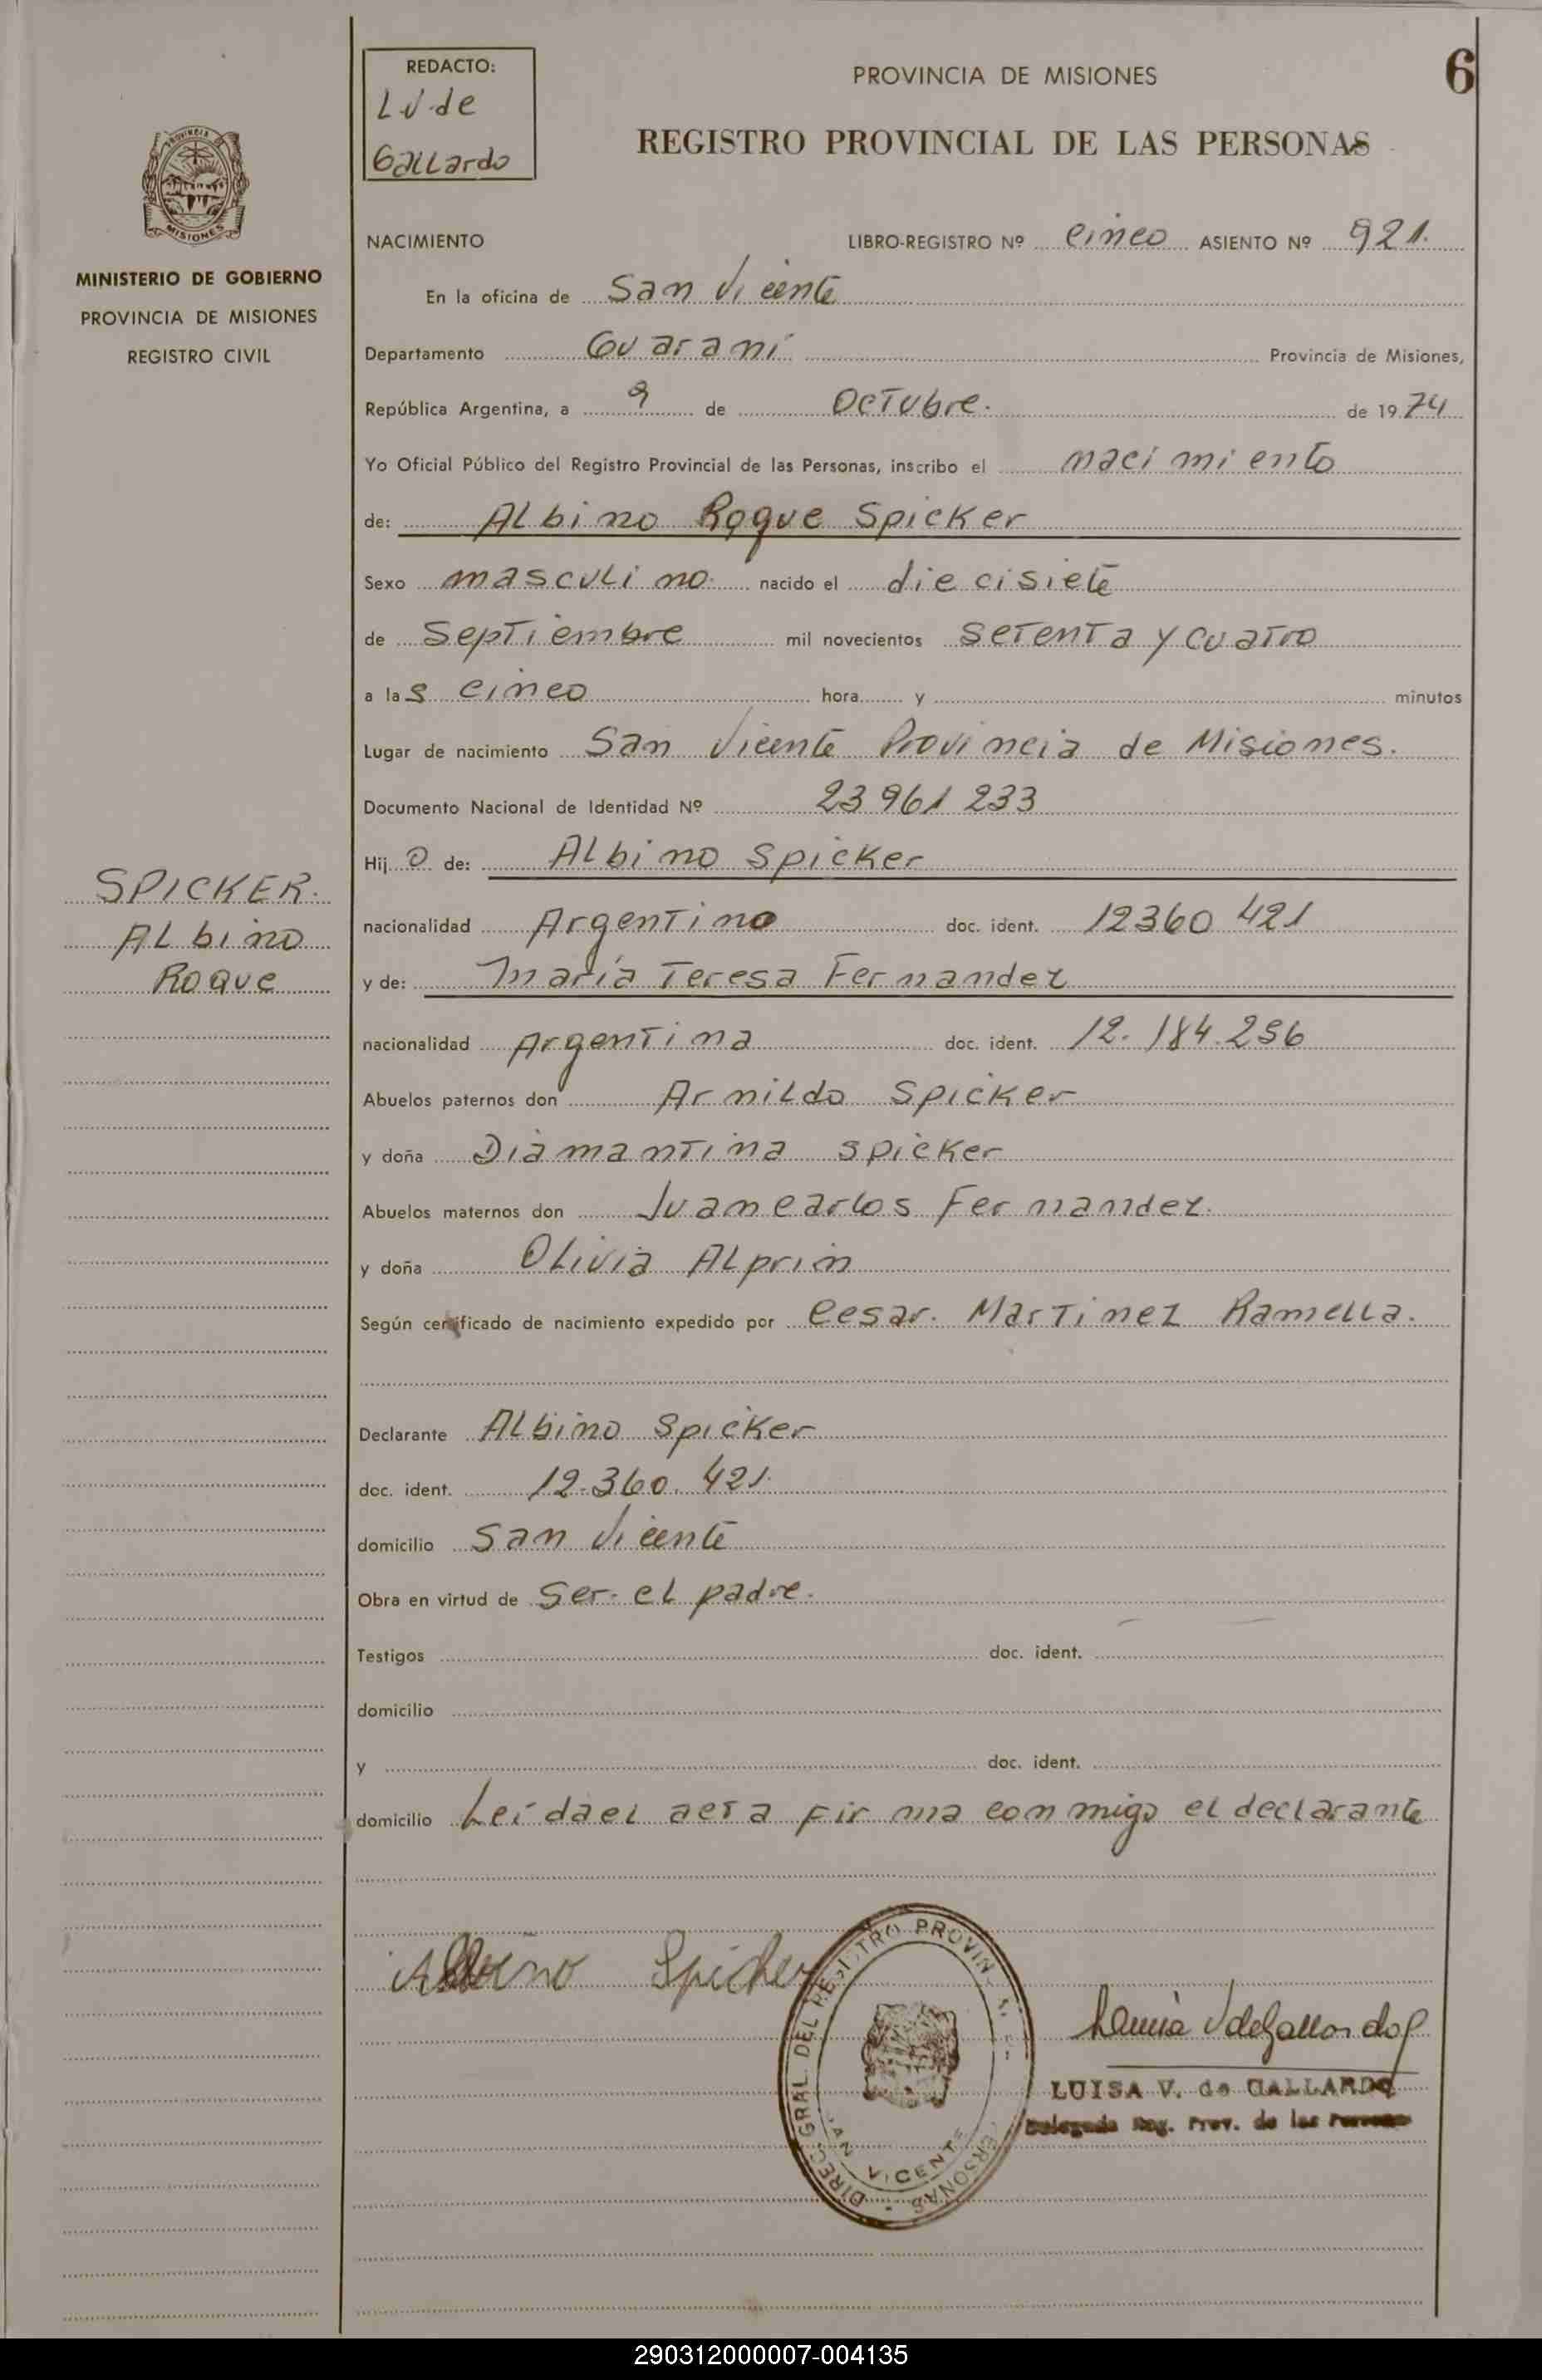 REDACTO:
L V de
Gallardo
PROVINCIA DE MISIONES
6
REGISTRO PROVINCIAL DE LAS PERSONAS
MISIONES
MINISTERIO DE GOBIERNO
PROVINCIA DE MISIONES
REGISTRO CIVIL
NACIMIENTO
LIBRO-REGISTRO Nº cinco ASIENTO Nº 921.
En la oficina de San Vicente
Departamento Guaraní Provincia de Misiones,
República Argentina, a 9 de Octubre. de 1974
Yo Oficial Público del Registro Provincial de las Personas, inscribo el nacimiento
de: Albino Roque Spicker
Sexo masculino. nacido el diecisiete
de Septiembre mil novecientos setenta y cuatro
a las cinco hora y minutos
Lugar de nacimiento San Vicente Provincia de Misiones.
Documento Nacional de Identidad Nº 23961233
Hijo de: Albino Spicker
SPICKER.
Albino
Roque
nacionalidad Argentino doc. ident. 12360421
y de: María Teresa Fernandez
nacionalidad Argentina doc. ident. 12.184.256
Abuelos paternos don Arnildo Spicker
y doña Diamantina Spicker
Abuelos maternos don Juan carlos Fernandez.
y doña Olivia Alprin
Según certificado de nacimiento expedido por Cesar. Martinez Ramella.
Declarante Albino Spicker
doc. ident. 12.360.421.
domicilio San Vicente
Obra en virtud de Ser el padre.
Testigos doc. ident.
domicilio
y doc. ident.
domicilio Leída el acta firma conmigo el declarante
Albino Spicker
DIREC. GRAL. DEL REGISTRO PROVIN PERSONAS
SAN VICENTE
V de Gallardo
LUISA V. de GALLARDO
Delegada Reg. Prov. de las Personas
290312000007-004135